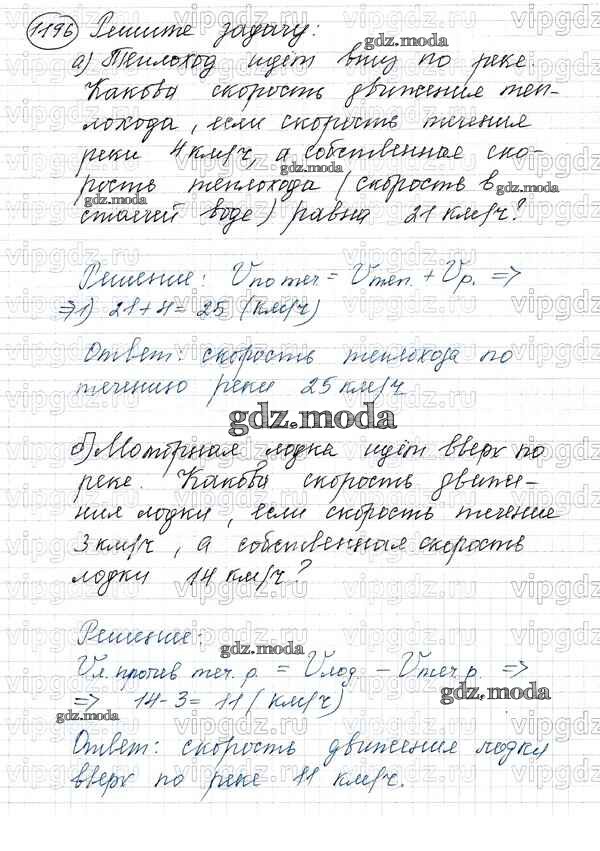 1196 Решите задачу:
gdz.moda
а) Теплоход идёт вниз по реке.
Какова скорость движения теп-
лохода, если скорость течения
gdz.moda
реки 4 км/ч, а собственная ско-
рость теплохода (скорость в
gdz.moda
gdz.moda
стоячей воде) равна 21 км/ч?
Решение: Vпо теч = Vтеп. + Vр. =>
=> 1) 21+4= 25 (км/ч)
Ответ: скорость теплохода по
течению реки 25 км/ч
gdz.moda
б) Моторная лодка идёт вверх по
реке. Какова скорость движе-
ния лодки, если скорость течение
3 км/ч, а собственная скорость
лодки 14 км/ч?
gdz.moda
Решение:
gdz.moda
Vл.против теч. р. = Vлод. – Vтеч р. =>
=> 14-3= 11 (км/ч)
gdz.moda
gdz.moda
Ответ: скорость движения лодки
вверх по реке 11 км/ч.
vipgdz.ru